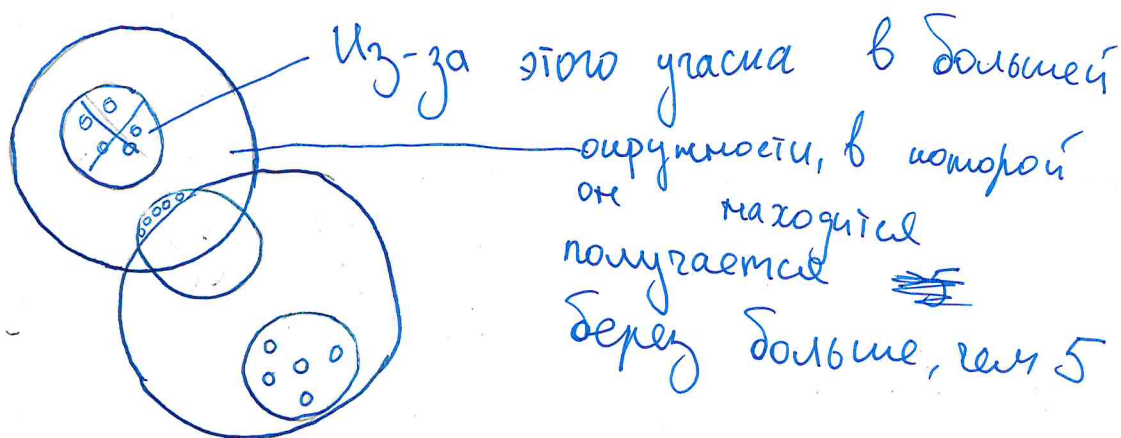 Из-за этого участка в большей
окружности, в которой
он находится
получается
берез больше, чем 5